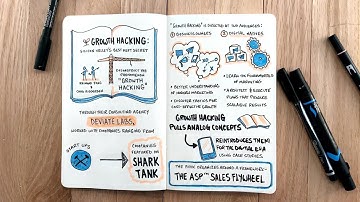 "GROWTH HACKING:
SILICON VALLEY'S BEST KEPT SECRET
DECONSTRUCT THE
PHENOMENON
OF GROWTH
HACKING
RAYMOND FONG
CHAD RIDDERSEN
THROUGH THEIR CONSULTING AGENCY
DEVIATE LABS,
WORKED WITH COMPANIES RANGING FROM
START UPS
COMPANIES
FEATURED ON
SHARK
TANK
"GROWTH HACKING" IS DIRECTED AT TWO AUDIENCES:
① BUSINESS OWNERS
② DIGITAL NATIVES
• BETTER UNDERSTANDING
OF MODERN MARKETING
• DISCOVER TACTICS FOR
COST-EFFECTIVE GROWTH
• LEARN THE FUNDAMENTALS OF
MARKETING
• ARCHITECT & EXECUTE
FUNNELS THAT PRODUCE
SCALABLE RESULTS
GROWTH HACKING
PULLS ANALOG CONCEPTS
REINTRODUCES THEM
FOR THE DIGITAL ERA
USING CASE STUDIES
THE BOOK ORGANIZES AROUND A FRAMEWORK—
THE ASP™ SALES FLYWHEEL